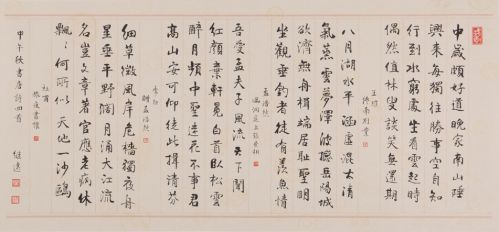 中歲頗好道晚家南山陲
興來每獨往勝事空自知
行到水窮處坐看雲起時
偶然值林叟談笑無還期
王維
終南別業
八月湖水平涵虛混太清
氣蒸雲夢澤波撼岳陽城
欲濟無舟楫端居恥聖明
坐觀垂釣者徒有羨魚情
孟浩然
臨洞庭上張丞相
吾愛孟夫子風流天下聞
紅顏棄軒冕白首臥松雲
醉月頻中聖迷花不事君
高山安可仰徒此揖清芬
李白
贈孟浩然
細草微風岸危檣獨夜舟
星垂平野闊月涌大江流
名豈文章著官應老病休
飄〻何所似天地一沙鷗
杜甫
旅夜書懷
甲午秋書唐詩四首